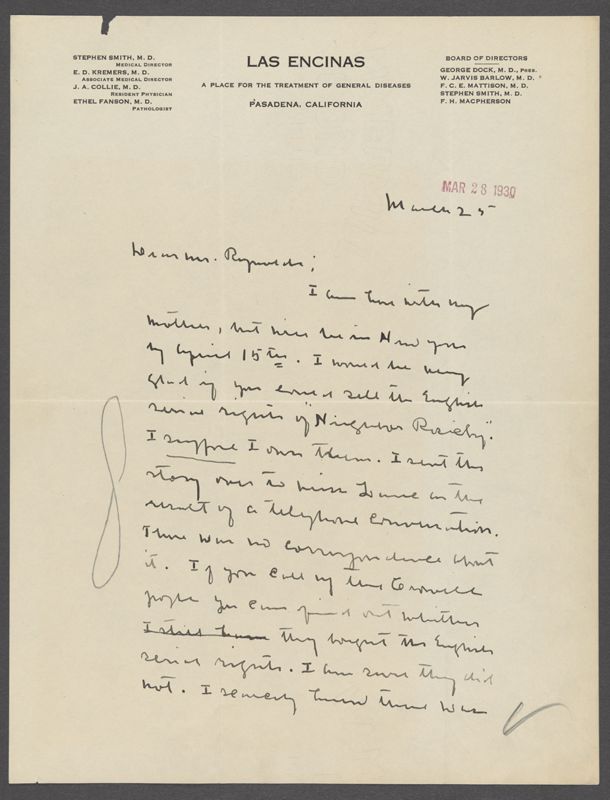 STEPHEN SMITH, M. D.
MEDICAL DIRECTOR
E. D. KREMERS, M. D.
ASSOCIATE MEDICAL DIRECTOR
J. A. COLLIE, M. D.
RESIDENT PHYSICIAN
ETHEL FANSON, M. D.
PATHOLOGIST
LAS ENCINAS
A PLACE FOR THE TREATMENT OF GENERAL DISEASES
PASADENA, CALIFORNIA
BOARD OF DIRECTORS
GEORGE DOCK, M. D., PRES.
W. JARVIS BARLOW, M. D.
F. C. E. MATTISON, M. D.
STEPHEN SMITH, M. D.
F. H. MACPHERSON
MAR 28 1930
March 25
Dear Mr. Reynolds;
I am here with my
mother, but will be in New York
by April 15th. I would be very
glad if you could sell the English
serial rights of "Neighbor Rosicky".
I suppose I own them. I sent the
story over to Miss Lane as the
result of a telephone conversation.
There was no correspondence about
it. If you call up the Crowell
people you can find out whether
I still have they bought the English
serial rights. I am sure they did
not. I scarcely knew there was